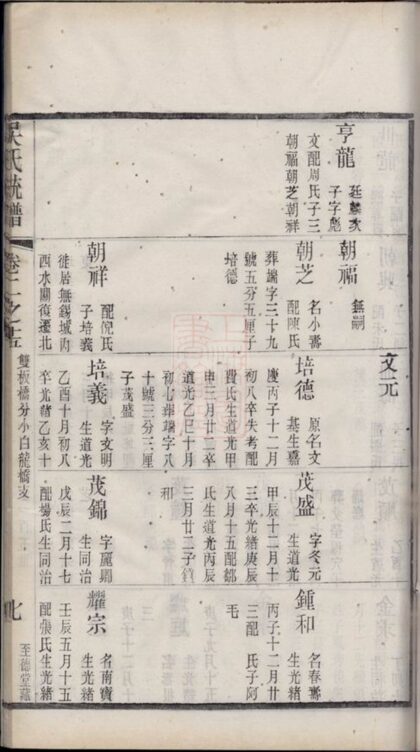 亨龍
廷麟次
子字彪
文配周氏子三
朝福朝芝朝祥
朝福
無嗣
朝芝
名小壽
配陳氏
葬端字三十九
號五分五厘子
培德
朝祥
配倪氏
子培義
徙居無錫城內
西水關復遷北
文元
培德
原名文
基生嘉
慶丙子十二月
初八卒失考配
費氏生道光甲
申三月廿二卒
道光乙巳十月
初七葬端字八
十號三分三厘
子茂盛
培義
字文明
生道光
乙酉十月初八
卒光緒乙亥十
茂盛
字冬元
生道光
甲辰十二月十
三卒光緒庚辰
八月十五配鄒
氏生道光丙辰
三月廿二子鍾
和
茂錦
字麗卿
生同治
戊辰二月十七
配楊氏生同治
鍾和
名春壽
生光緒
丙子十二月廿
三配 氏子阿
毛
耀宗
名南寶
生光緒
壬辰五月十五
配張氏生光緒
吳氏統譜
卷二之五
雙板橋分小白龍橋支
七
至德堂藏